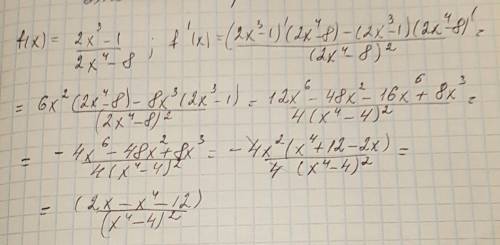 f(x) = (2x³-1)/(2x⁴-8) ; f'(x) = ((2x³-1)'(2x⁴-8)-(2x³-1)(2x⁴-8)')/(2x⁴-8)² =
= (6x²(2x⁴-8)-8x³(2x³-1))/(2x⁴-8)² = (12x⁶-48x²-16x⁶+8x³)/(4(x⁴-4)²) =
= (-4x⁶-48x²+8x³)/(4(x⁴-4)²) = (-4x²(x⁴+12-2x))/(4(x⁴-4)²) =
= (2x-x⁴-12)/(x⁴-4)²